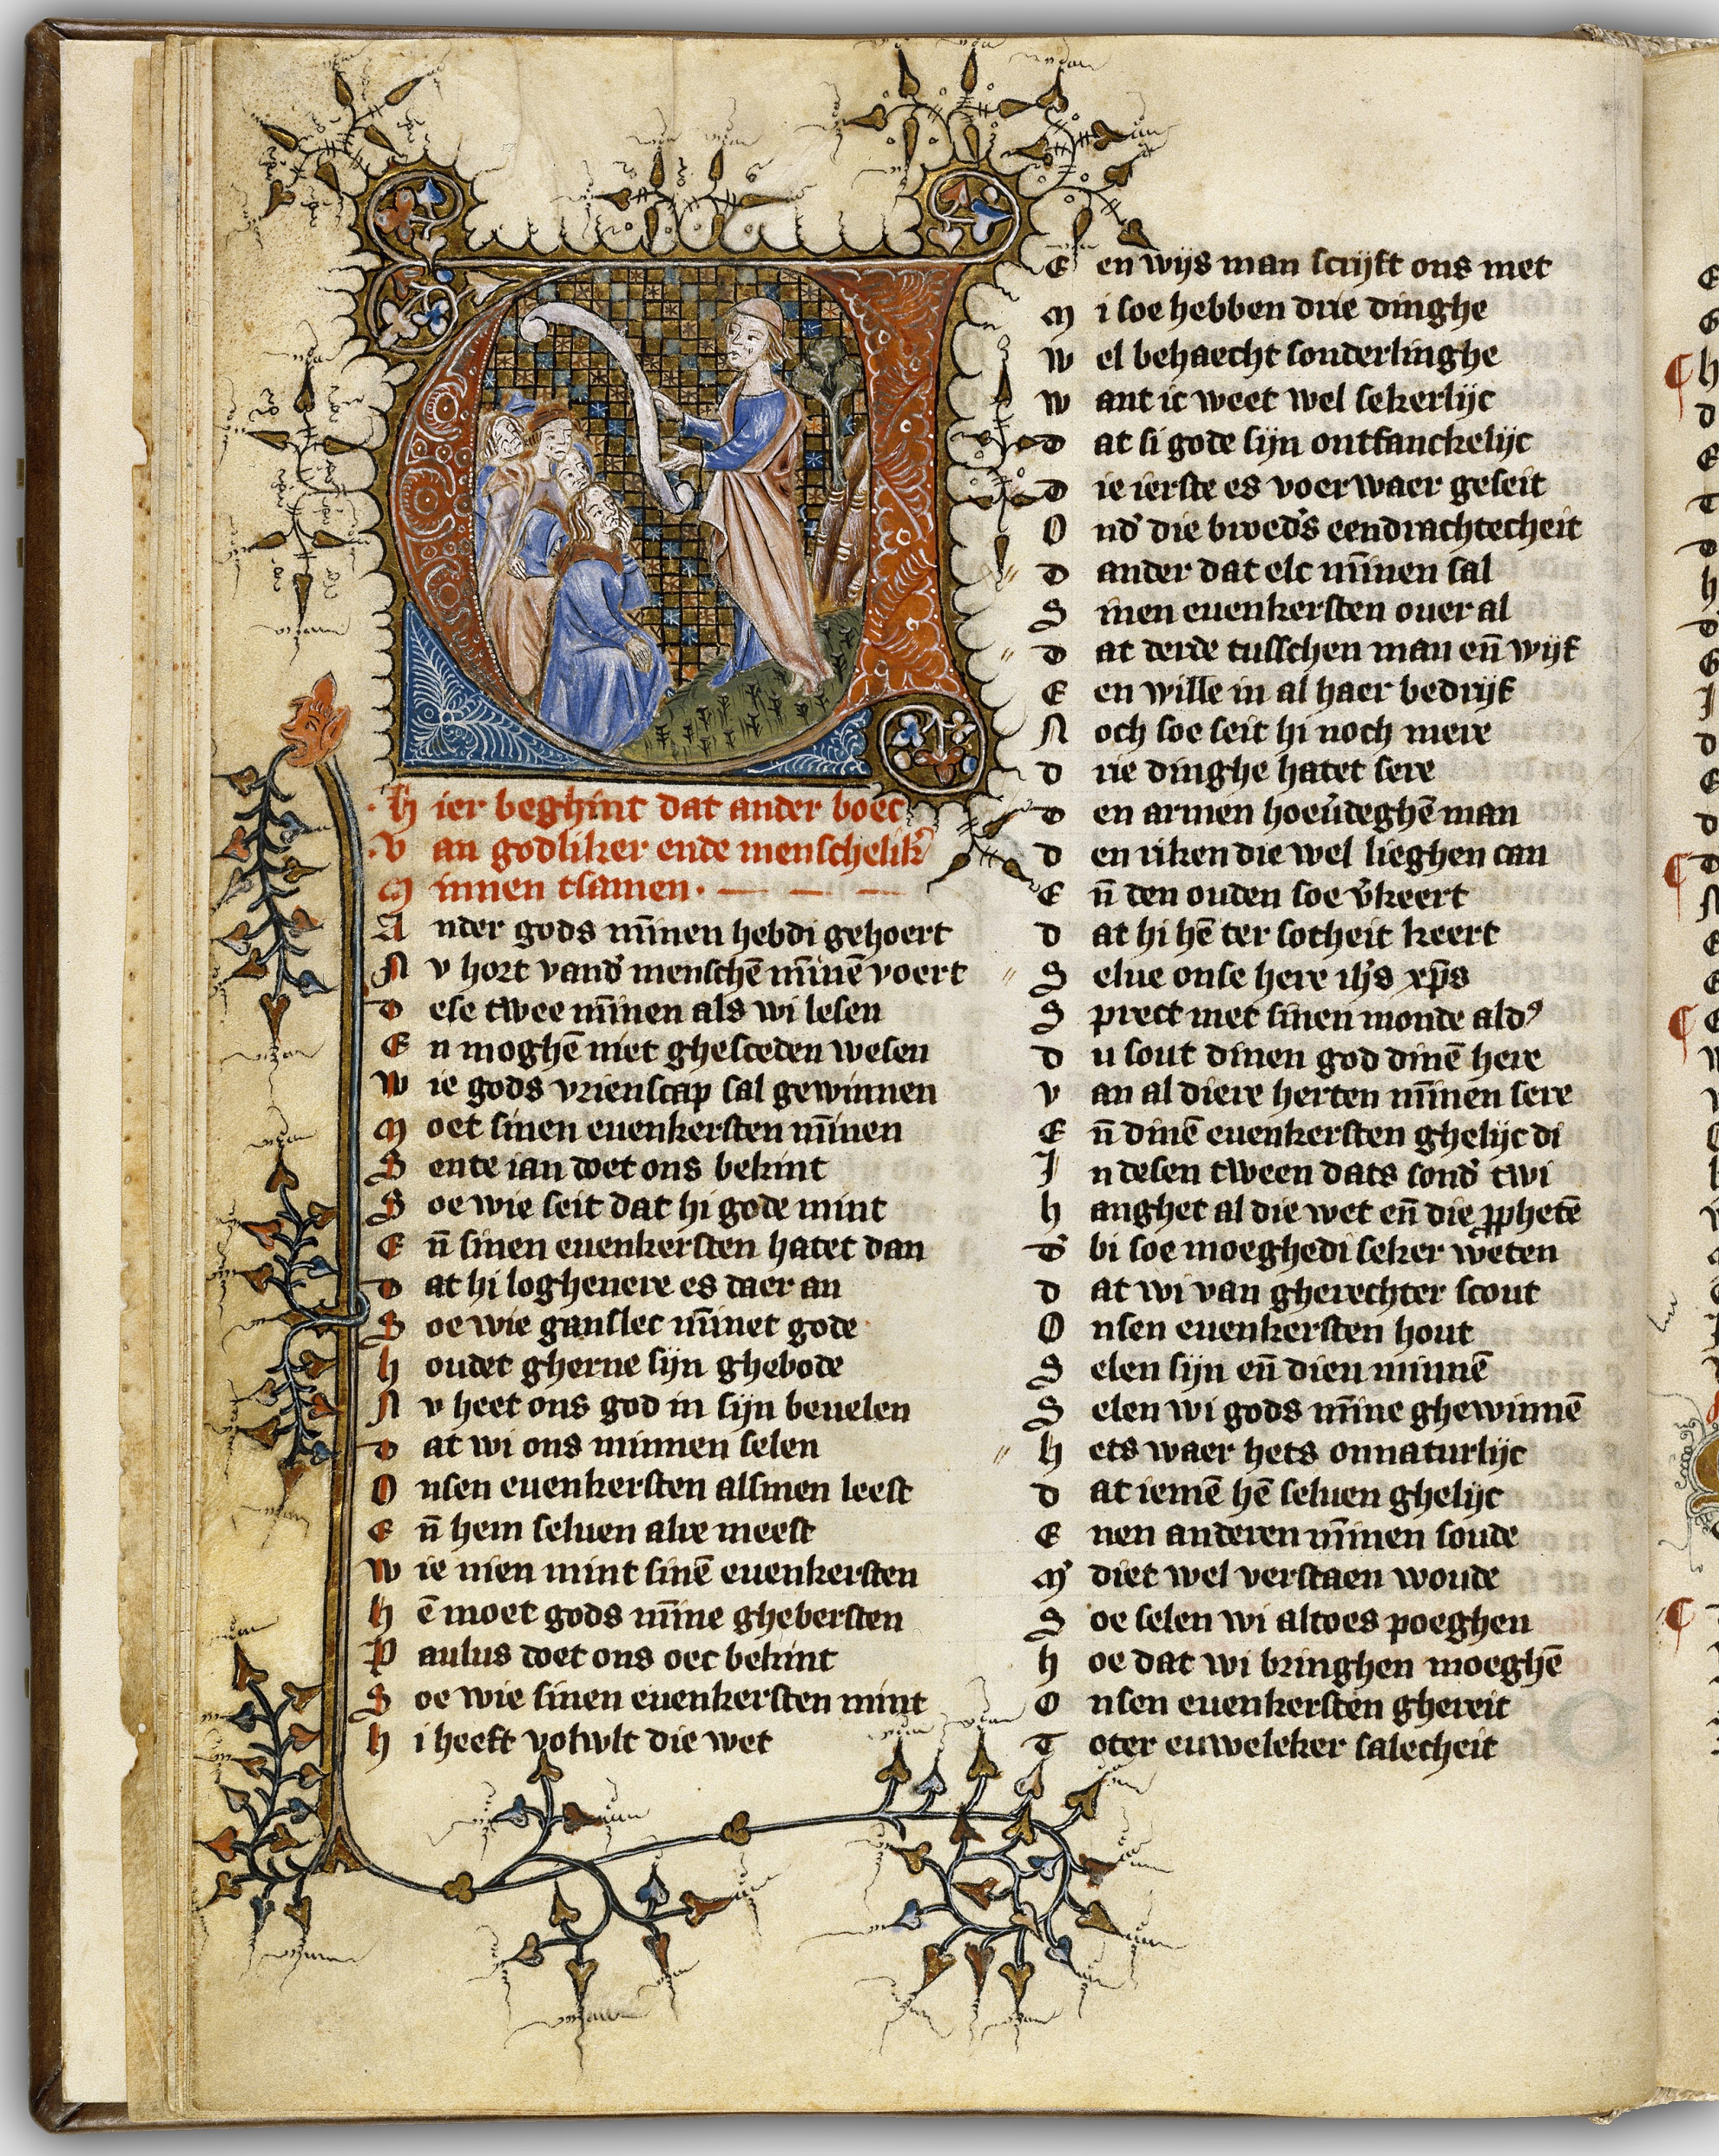 H ier beghint dat ander boec
V an godliker ende menschelikʼ
M innen tsamen.
A nder gods mīnen hebdi gehoert
N v hort vandʼ menschē mīnē voert
D ese twee mīnen als wi lesen
E n moghē niet ghesceden wesen
W ie gods vrienscap sal gewinnen
M oet sinen euenkersten mīnen
S ente ian doet ons bekint
S oe wie seit dat hi gode mint
E n̄ sinen euenkersten hatet dan
D at hi loghenere es daer an
S oe wie ganslec mīnet gode
H oudet gherne sijn ghebode
N v heet ons god in sijn beuelen
D at wi ons minnen selen
O nsen euenkersten alsmen leest
E n̄ hem seluen alre meest
W ie nien mint sinē euenkersten
H ē moet gods mīne ghebersten
P aulus doet ons oec bekint
S oe wie sinen euenkersten mint
H i heeft volvult die wet
E en wijs man scrijft ons met
M i soe hebben drie dinghe
W el behaecht sonderlinghe
W ant ic weet wel sekerlijc
D at si gode sijn ontfanckelijc
D ie ierste es voer waer geseit
O ndʼ die bruedʼs eendrachtecheit
D ander dat elc mīnen sal
S inen euenkersten ouer al
D at derde tusschen man en̄ wijf
E en wille in al haer bedrijf
N och soe seit hi noch mere
D rie dinghe hatet sere
D en armen hoeuʼdeghē man
D en riken die wel lieghen can
E n̄ den ouden soe vʼkeert
D at hi hē ter sotheit keert
S elue onse here ihʼs xp̄s
S prect met sinen monde aldʼ
D u sout dinen god dinē here
V an al diere herten mīnen sere
E n̄ dinē euenkersten ghelijc di
I n desen tween dats sondʼ twi
H anghet al die wet en̄ die ꝓphetē
Dʼ bi soe moeghedi seker weten
D at wi van gherechter scout
O nsen euenkersten hout
S elen sijn en̄ dien minnē
S elen wi gods mīne ghewinnē
H ets waer hets onnaturlijc
D at iemē hē seluen ghelijc
E nen anderen mīnen soude
Mʼ diet wel verstaen woude
S oe selen wi altoes poeghen
H oe dat wi bringhen moeghē
O nsen euenkersten ghereit
T oter euweleker salecheit